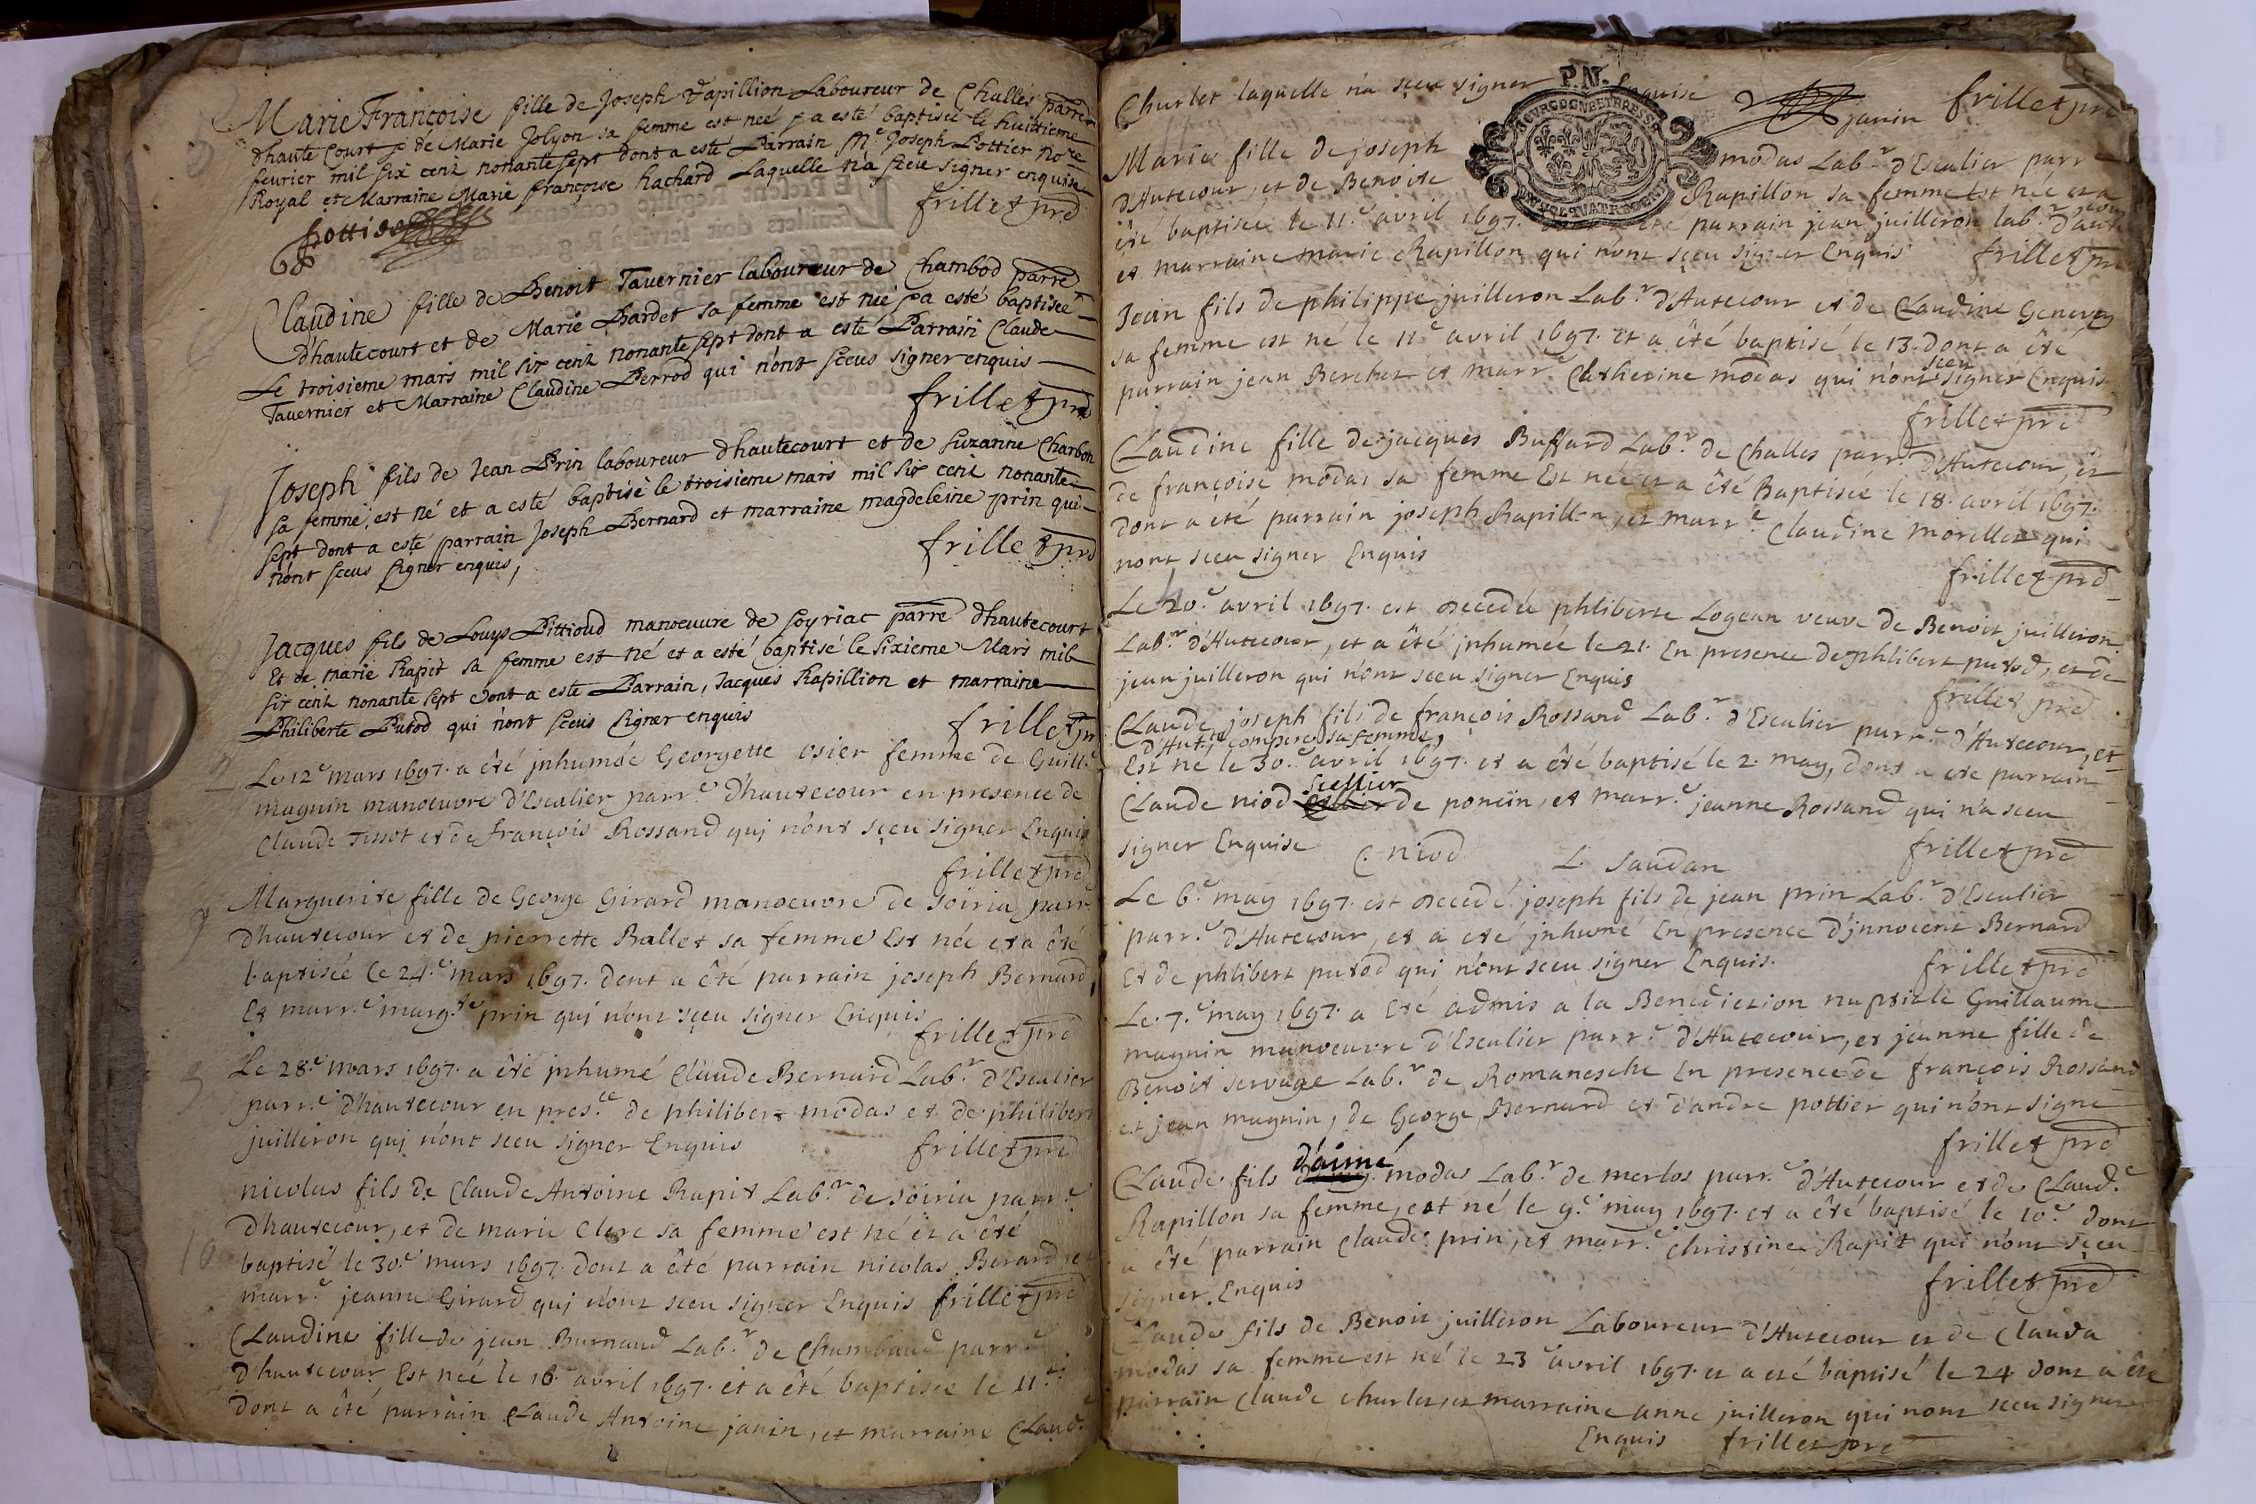 Marie Françoise fille de Joseph Rapillion Laboureur de Challes parre
dhaute Court & de Marie Jolyon sa femme est neé & a esté baptisée le huittieme
feurier mil six cent nonante sept dont a esté Parrain Me Joseph Pottier No.re
Royal et Marraine Marie françoise hachard Laquelle n'a sçeu signer enquise
Pottier frillet pre
Claudine fille de Benoit Tauernier laboureur de Chambod parre
d'hautecourt et de Marie Bardet sa femme est neé & a esté baptisée
Le troisieme mars mil six cent nonante sept dont a esté Parrain Claude
Tauernier et Marraine Claudine Perrod qui n'ont sceus signer enquis
frillet pre
Joseph fils de Jean Prin laboureur dhautecourt et de Suzanne Charbon
sa femme, est né et a esté baptisé le troisieme mars mil six cent nonante
sept dont a esté parrain Joseph Bernard et marraine magdeleine prin qui
n'ont sceus signer enquis,
frillet pre
Jacques fils de Louys Pittioud manoeuure de Soyriac parre dhautecourt
Et de marie Rapit sa femme est né et a esté baptisé le sixieme Mars mil
six cent nonante sept dont a este Parrain, Jacques Rapillion et marraine
Philiberte Putod qui n'ont sceus signer enquis
frillet pr
Le 12.e mars 1697. a êté jnhumée Georgette osier femme de Guill.e
magnin manoeuvre d'Escalier parr.e d'hautecour en presence de
Claude Tissot et de françois Rossand qui n'ont sçeu signer Enquis
frillet pre
Marguerite fille de George Girard manoeuvre de soiria parr.e
d'hautecour et de pierrette Ballet sa femme Est née et a êté
baptisée le 24.e mars 1697. dont a êté parrain joseph Bernard,
Et marr.e marg.te prin qui n'ont sçeu signer Enquis
frillet pre
Le 28.e mars 1697. a êté jnhumé Claude Bernard Lab.r d'Escalier
parr.e d'hautecour en pres.ce de philibert modas et de philibert
juilleron qui n'ont sceu signer Enquis frillet pre
nicolas fils de Claude Antoine Rapit Lab.r de soiria parr.e
d'hautecour, et de marie Clerc sa femme est né et a êté
baptisé le 30.e mars 1697. dont a êté parrain nicolas Berard, et
marr.e jeanne Girard qui n'ont sceu signer Enquis frillet pre
Claudine fille de jean Burnaud Lab.r de Chambaud parr.e
d'hautecour Est née le 10.e avril 1697. et a êté baptisée le 11.e
dont a êté parrain Claude Antoine janin, et marraine Claud.e
Charlet laquelle n'a sçeu signer Enquise
P.N.
janin frillet pre
Marie fille de joseph modas Lab.r d'Escalier parr.e
d'Autecour, et de Benoite Rapillon sa femme Est née et a
êté baptisée le 11.e avril 1697. parrain jean juilleron lab.r d'aute
cour
et marraine marie Rapillon qui n'ont sçeu signer Enquis frillet pre
Jean fils de philippe juilleron Lab.r d'Autecour et de Claudine Genevey
sa femme est né le 11.e avril 1697. et a êté baptisé le 13. dont a êté
sceu
parrain jean Berchet et marr.e Catherine modas qui n'ont signer Enquis
frillet pre
Claudine fille de jacques Buffard Lab.r de Challes parr.e d'Autecour, et
de françoise modas sa femme Est née et a êté Baptisée le 18. avril 1697.
dont a êté parrain joseph Rapillon, et marr.e Claudine morellet qui
n'ont sceu signer Enquis
frillet pre
Le 20.e avril 1697. est decedée phliberte Logean veuve de Benoit juilleron
Lab.r d'Autecour, et a êté jnhumée le 21. En presence de phlibert putod, et de
jean juilleron qui n'ont sceu signer Enquis
frillet pre
Claude joseph fils de françois Rossand Lab.r d'Escalier parr.e d'Autecour, et
sa femme,
Est né le 30.e avril 1697. et a êté baptisé le 2. may, dont a ete parrain
Scellier
Claude niod de poncin, et marr.e jeanne Rossand qui n'a sceu
signer Enquise C. niod L. Saudan frillet pre
Le 6.e may 1697. est decedé joseph fils de jean prin Lab.r d'Escalier
parr.e d'Autecour, et a eté jnhumé En presence d'jnnocent Bernard
Et de phlibert putod qui n'ont sceu signer Enquis. frillet pre
Le 7.e may 1697. a Eté admis a la Benediction nuptiale Guillaume
magnin manoeuvre d'Escalier parr.e d'Autecour, et jeanne fille de
Benoit servage Lab.r de Romanesche En presence de françois Rossand
et jean magnin, de George Bernard et d'andré pottier qui n'ont signe
frillet pre
d'aimé
Claude fils modas Lab.r de merlos parr.e d'Autecour et de Claud.e
Rapillon sa femme, est né le 9.e may 1697. et a êté baptisé le 10.e dont
a êté parrain Claude prin, et marr.e Christine Rapit qui n'ont sçeu
signer Enquis
frillet pre
Claude fils de Benoit juilleron Laboureur d'Autecour et de Clauda
modas sa femme est né le 23 avril 1697. et a eté baptisé le 24 dont a êté
parrain Claude charlet et marraine anne juilleron qui n'ont sceu signer
Enquis frillet pre